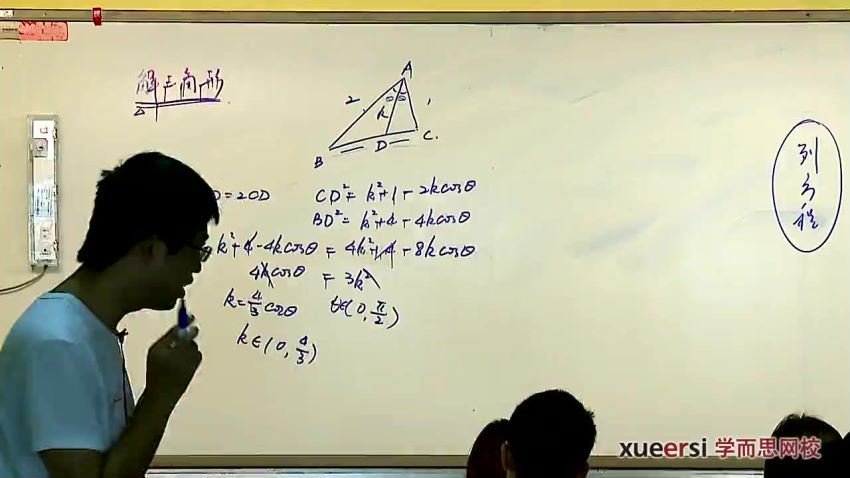 解三角形
A
2
1
θ θ
k
B
D
C.
D=2CD
CD²=k²+1-2kcosθ
BD²=k²+4-4kcosθ
k²+4-4kcosθ=4k²+4-8kcosθ
4kcosθ=3k²
k=4/3 cosθ
θ∈(0,π/2)
k∈(0,4/3)
列方程
xueersi 学而思网校